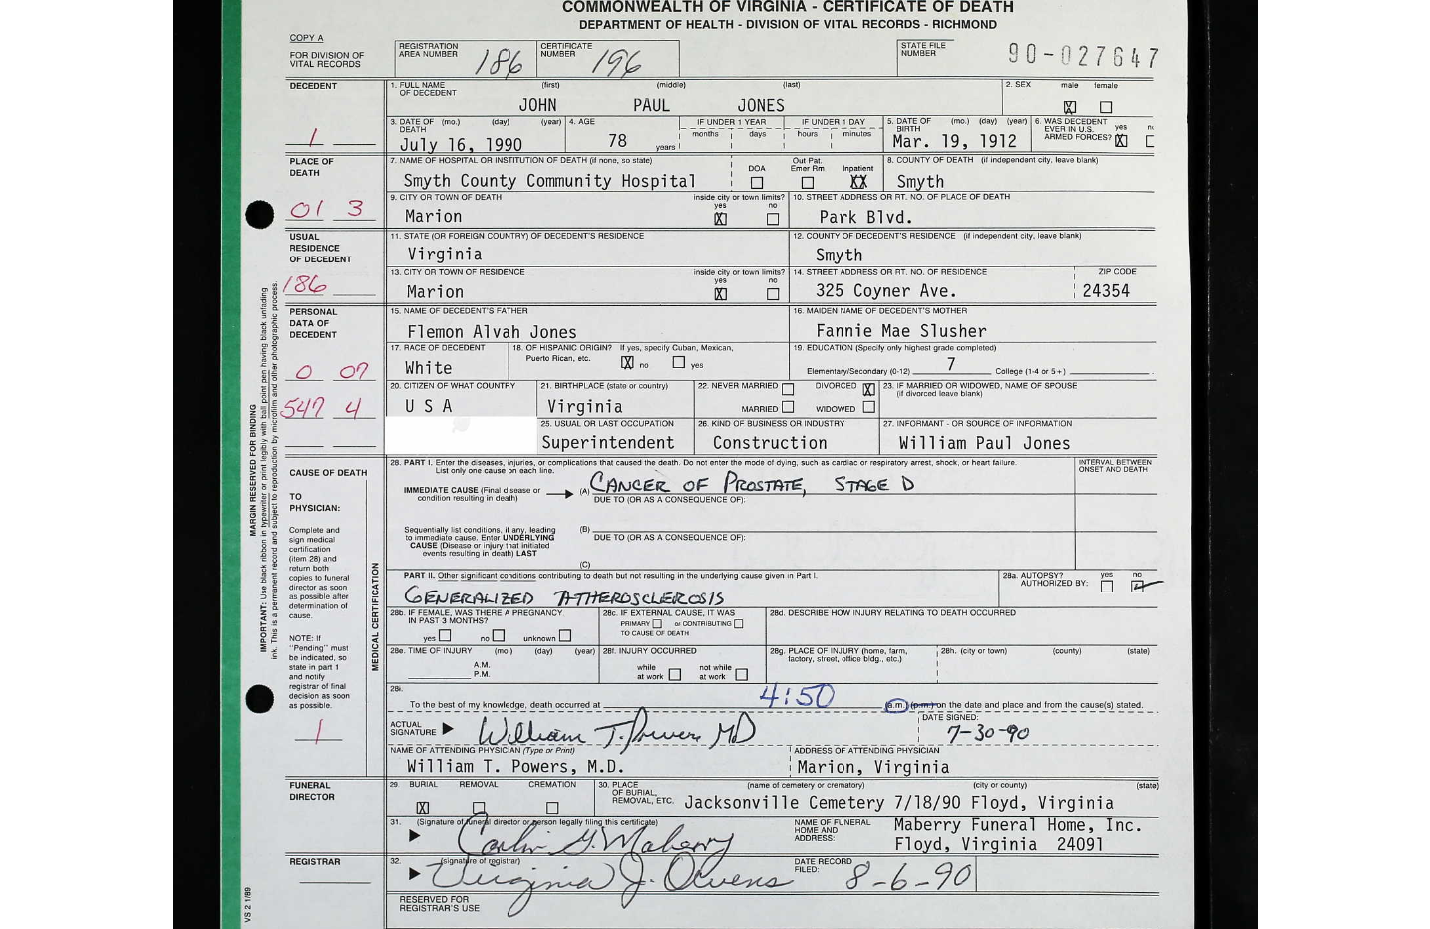 COMMONWEALTH OF VIRGINIA - CERTIFICATE OF DEATH
DEPARTMENT OF HEALTH - DIVISION OF VITAL RECORDS - RICHMOND
COPY A
FOR DIVISION OF VITAL RECORDS
REGISTRATION AREA NUMBER 186
CERTIFICATE NUMBER 196
STATE FILE NUMBER 90-027647
DECEDENT
1. FULL NAME OF DECEDENT (first) (middle) (last)
JOHN PAUL JONES
2. SEX male female
X
1
3. DATE OF DEATH (mo.) (day) (year)
July 16, 1990
4. AGE
78 years
IF UNDER 1 YEAR months days
IF UNDER 1 DAY hours minutes
5. DATE OF BIRTH (mo.) (day) (year)
Mar. 19, 1912
6. WAS DECEDENT EVER IN U.S. ARMED FORCES? yes
X
PLACE OF DEATH
7. NAME OF HOSPITAL OR INSTITUTION OF DEATH (if none, so state)
Smyth County Community Hospital
DOA Out Pat. Emer Rm Inpatient
XX
8. COUNTY OF DEATH (if independent city, leave blank)
Smyth
01 3
9. CITY OR TOWN OF DEATH
Marion
inside city or town limits? yes no
X
10. STREET ADDRESS OR RT. NO. OF PLACE OF DEATH
Park Blvd.
USUAL RESIDENCE OF DECEDENT
11. STATE (OR FOREIGN COUNTRY) OF DECEDENT'S RESIDENCE
Virginia
12. COUNTY OF DECEDENT'S RESIDENCE (if independent city, leave blank)
Smyth
186
13. CITY OR TOWN OF RESIDENCE
Marion
inside city or town limits? yes no
X
14. STREET ADDRESS OR RT. NO. OF RESIDENCE
325 Coyner Ave.
ZIP CODE
24354
PERSONAL DATA OF DECEDENT
15. NAME OF DECEDENT'S FATHER
Flemon Alvah Jones
16. MAIDEN NAME OF DECEDENT'S MOTHER
Fannie Mae Slusher
0 07
17. RACE OF DECEDENT
White
18. OF HISPANIC ORIGIN? If yes, specify Cuban, Mexican, Puerto Rican, etc.
X no yes
19. EDUCATION (Specify only highest grade completed)
Elementary/Secondary (0-12) 7 College (1-4 or 5+)
547 4
20. CITIZEN OF WHAT COUNTRY
U S A
21. BIRTHPLACE (state or country)
Virginia
22. NEVER MARRIED DIVORCED X
MARRIED WIDOWED
23. IF MARRIED OR WIDOWED, NAME OF SPOUSE (if divorced leave blank)
25. USUAL OR LAST OCCUPATION
Superintendent
26. KIND OF BUSINESS OR INDUSTRY
Construction
27. INFORMANT - OR SOURCE OF INFORMATION
William Paul Jones
MARGIN RESERVED FOR BINDING
IMPORTANT: Use black ribbon in typewriter or print legibly with ball point pen having black unfading ink. This is a permanent record and subject to reproduction by microfilm and other photographic process.
CAUSE OF DEATH
TO PHYSICIAN:
Complete and sign medical certification (item 28) and return both copies to funeral director as soon as possible after determination of cause.
NOTE: If "Pending" must be indicated, so state in part 1 and notify registrar of final decision as soon as possible.
1
MEDICAL CERTIFICATION
28. PART I. Enter the diseases, injuries, or complications that caused the death. Do not enter the mode of dying, such as cardiac or respiratory arrest, shock, or heart failure.
List only one cause on each line.
INTERVAL BETWEEN ONSET AND DEATH
IMMEDIATE CAUSE (Final disease or condition resulting in death) (A) CANCER OF PROSTATE, STAGE D
DUE TO (OR AS A CONSEQUENCE OF):
Sequentially list conditions, if any, leading to immediate cause. Enter UNDERLYING CAUSE (Disease or injury that initiated events resulting in death) LAST
(B)
DUE TO (OR AS A CONSEQUENCE OF):
(C)
PART II. Other significant conditions contributing to death but not resulting in the underlying cause given in Part I.
GENERALIZED ATHEROSCLEROSIS
28a. AUTOPSY? AUTHORIZED BY: yes no
28b. IF FEMALE, WAS THERE A PREGNANCY IN PAST 3 MONTHS?
yes no unknown
28c. IF EXTERNAL CAUSE, IT WAS
PRIMARY or CONTRIBUTING
TO CAUSE OF DEATH
28d. DESCRIBE HOW INJURY RELATING TO DEATH OCCURRED
28e. TIME OF INJURY (mo) (day) (year)
A.M.
P.M.
28f. INJURY OCCURRED
while at work not while at work
28g. PLACE OF INJURY (home, farm, factory, street, office bldg., etc.)
28h. (city or town) (county) (state)
28i.
To the best of my knowledge, death occurred at 4:50 (a.m.) (p.m.) on the date and place and from the cause(s) stated.
ACTUAL SIGNATURE William T. Powers MD
DATE SIGNED:
7-30-90
NAME OF ATTENDING PHYSICIAN (Type or Print)
William T. Powers, M.D.
ADDRESS OF ATTENDING PHYSICIAN
Marion, Virginia
FUNERAL DIRECTOR
29. BURIAL REMOVAL CREMATION
X
30. PLACE OF BURIAL, REMOVAL, ETC. (name of cemetery or crematory) (city or county) (state)
Jacksonville Cemetery 7/18/90 Floyd, Virginia
31. (Signature of funeral director or person legally filing this certificate)
Carlin G. Maberry
NAME OF FUNERAL HOME AND ADDRESS:
Maberry Funeral Home, Inc.
Floyd, Virginia 24091
REGISTRAR
32. (signature of registrar)
Virginia J. Owens
DATE RECORD FILED: 8-6-90
RESERVED FOR REGISTRAR'S USE
VS 2 1/89